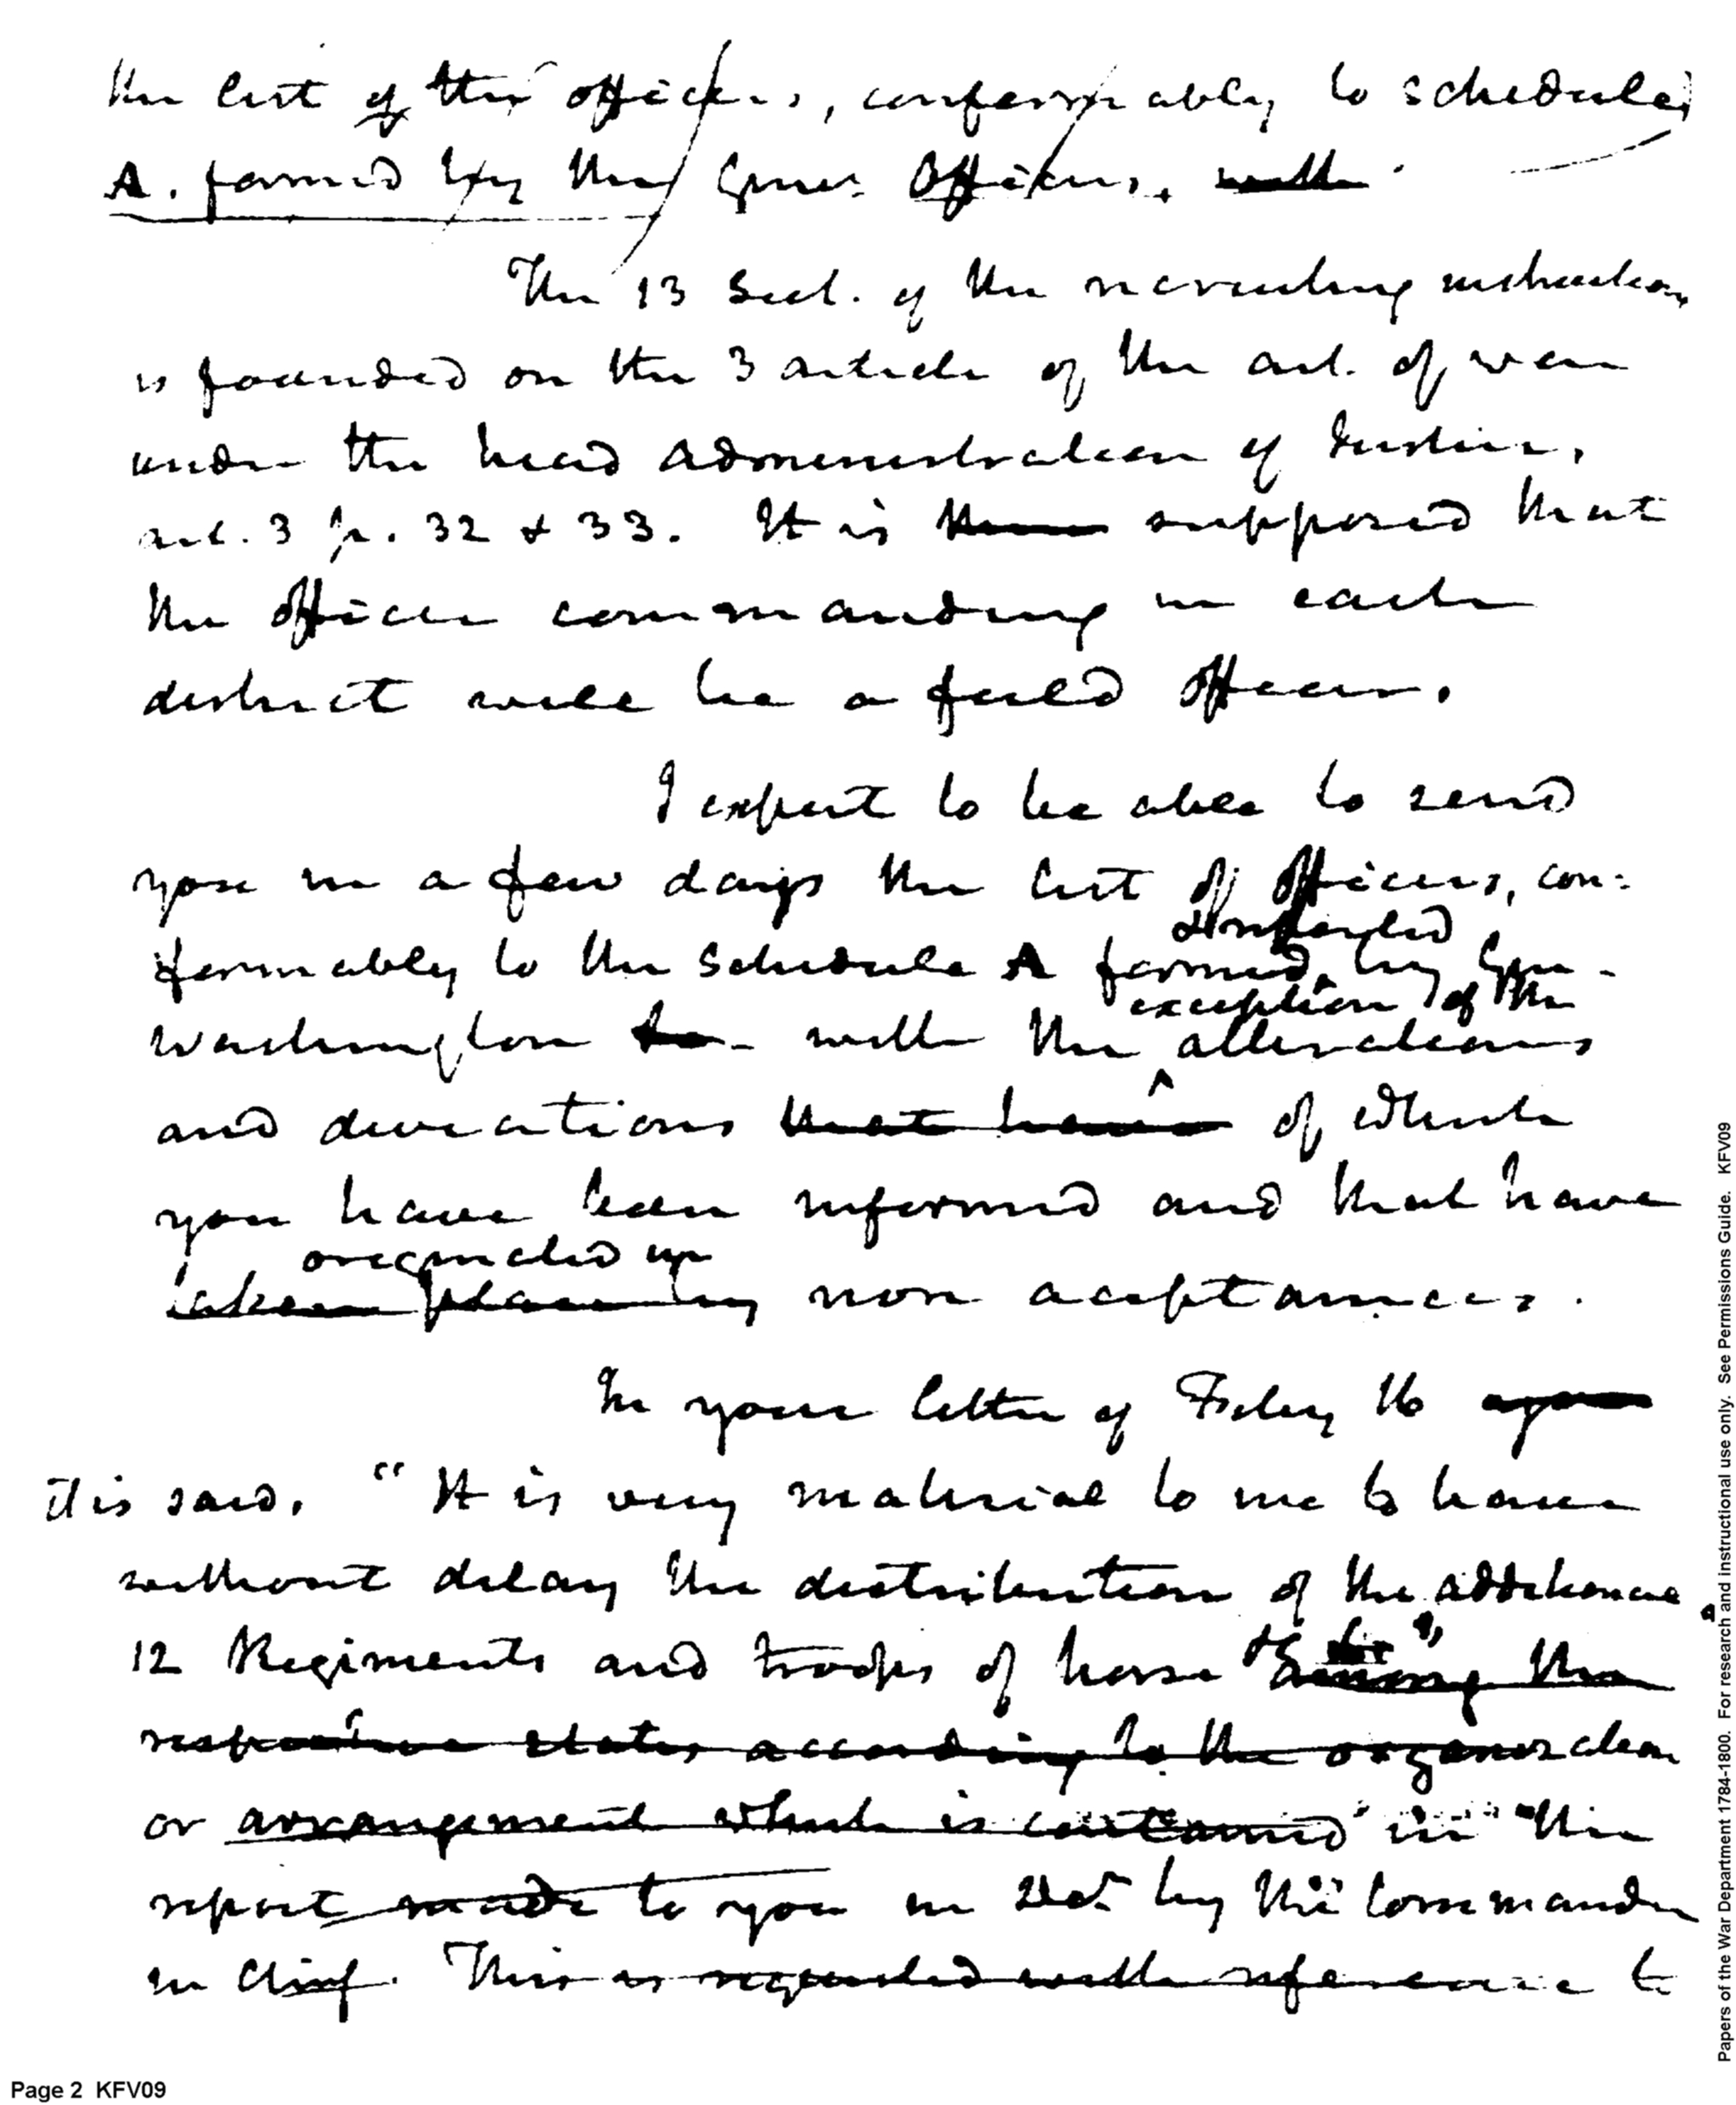 the list of the officers, conformably to schedule
A. formed by the Genl. Officers, with
The 13 Sect. of the recruiting instructions
is founded on the 3 article of the art. of war
under the head administration of Justice,
art. 3 p. 32 & 33. It is supposed that
the officer commanding in each
district will be a field officer.
I expect to be able to send
you in a few days the list of officers, con:
formably to the schedule A formed & reported by Gen-
Washington to with the exception of the alterations
and deviations that have of which
you have been informed and that have
originated in
taken place by non acceptances.
In your letter of Feby 16
it is said. "It is very material to me to have
without delay the distribution of the additional
12 Regiments and troops of horse &c" among the
respective states according to the organization
or arrangement which is contained in the
report made to you in Dec. by the Commander
in Chief. This is requested with reference to
Papers of the War Department 1784-1800. For research and instructional use only. See Permissions Guide. KFV09
Page 2 KFV09